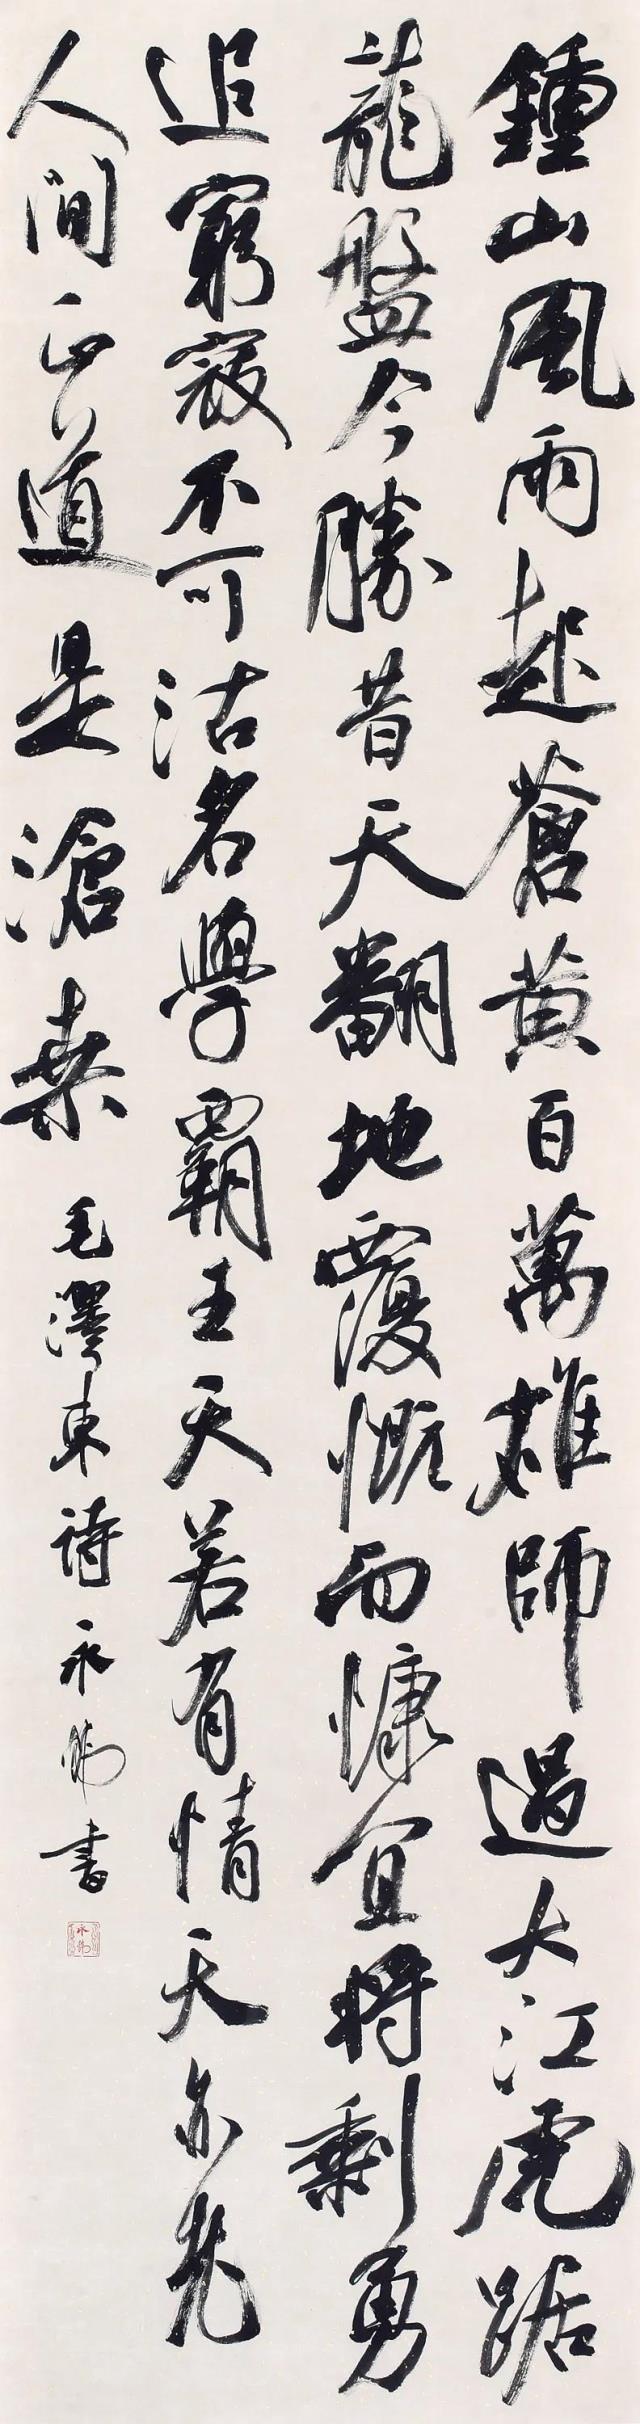 鍾山風雨起蒼黄百萬雄師過大江虎踞
龍盤今勝昔天翻地覆慨而慷宜將剩勇
追窮寇不可沽名學霸王天若有情天亦老
人間正道是滄桑
毛澤東詩 永
書